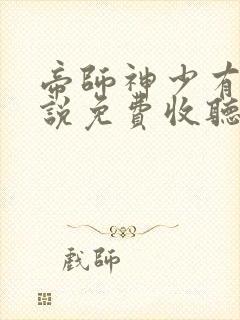 帝師神少有
説免費收聽
戲師